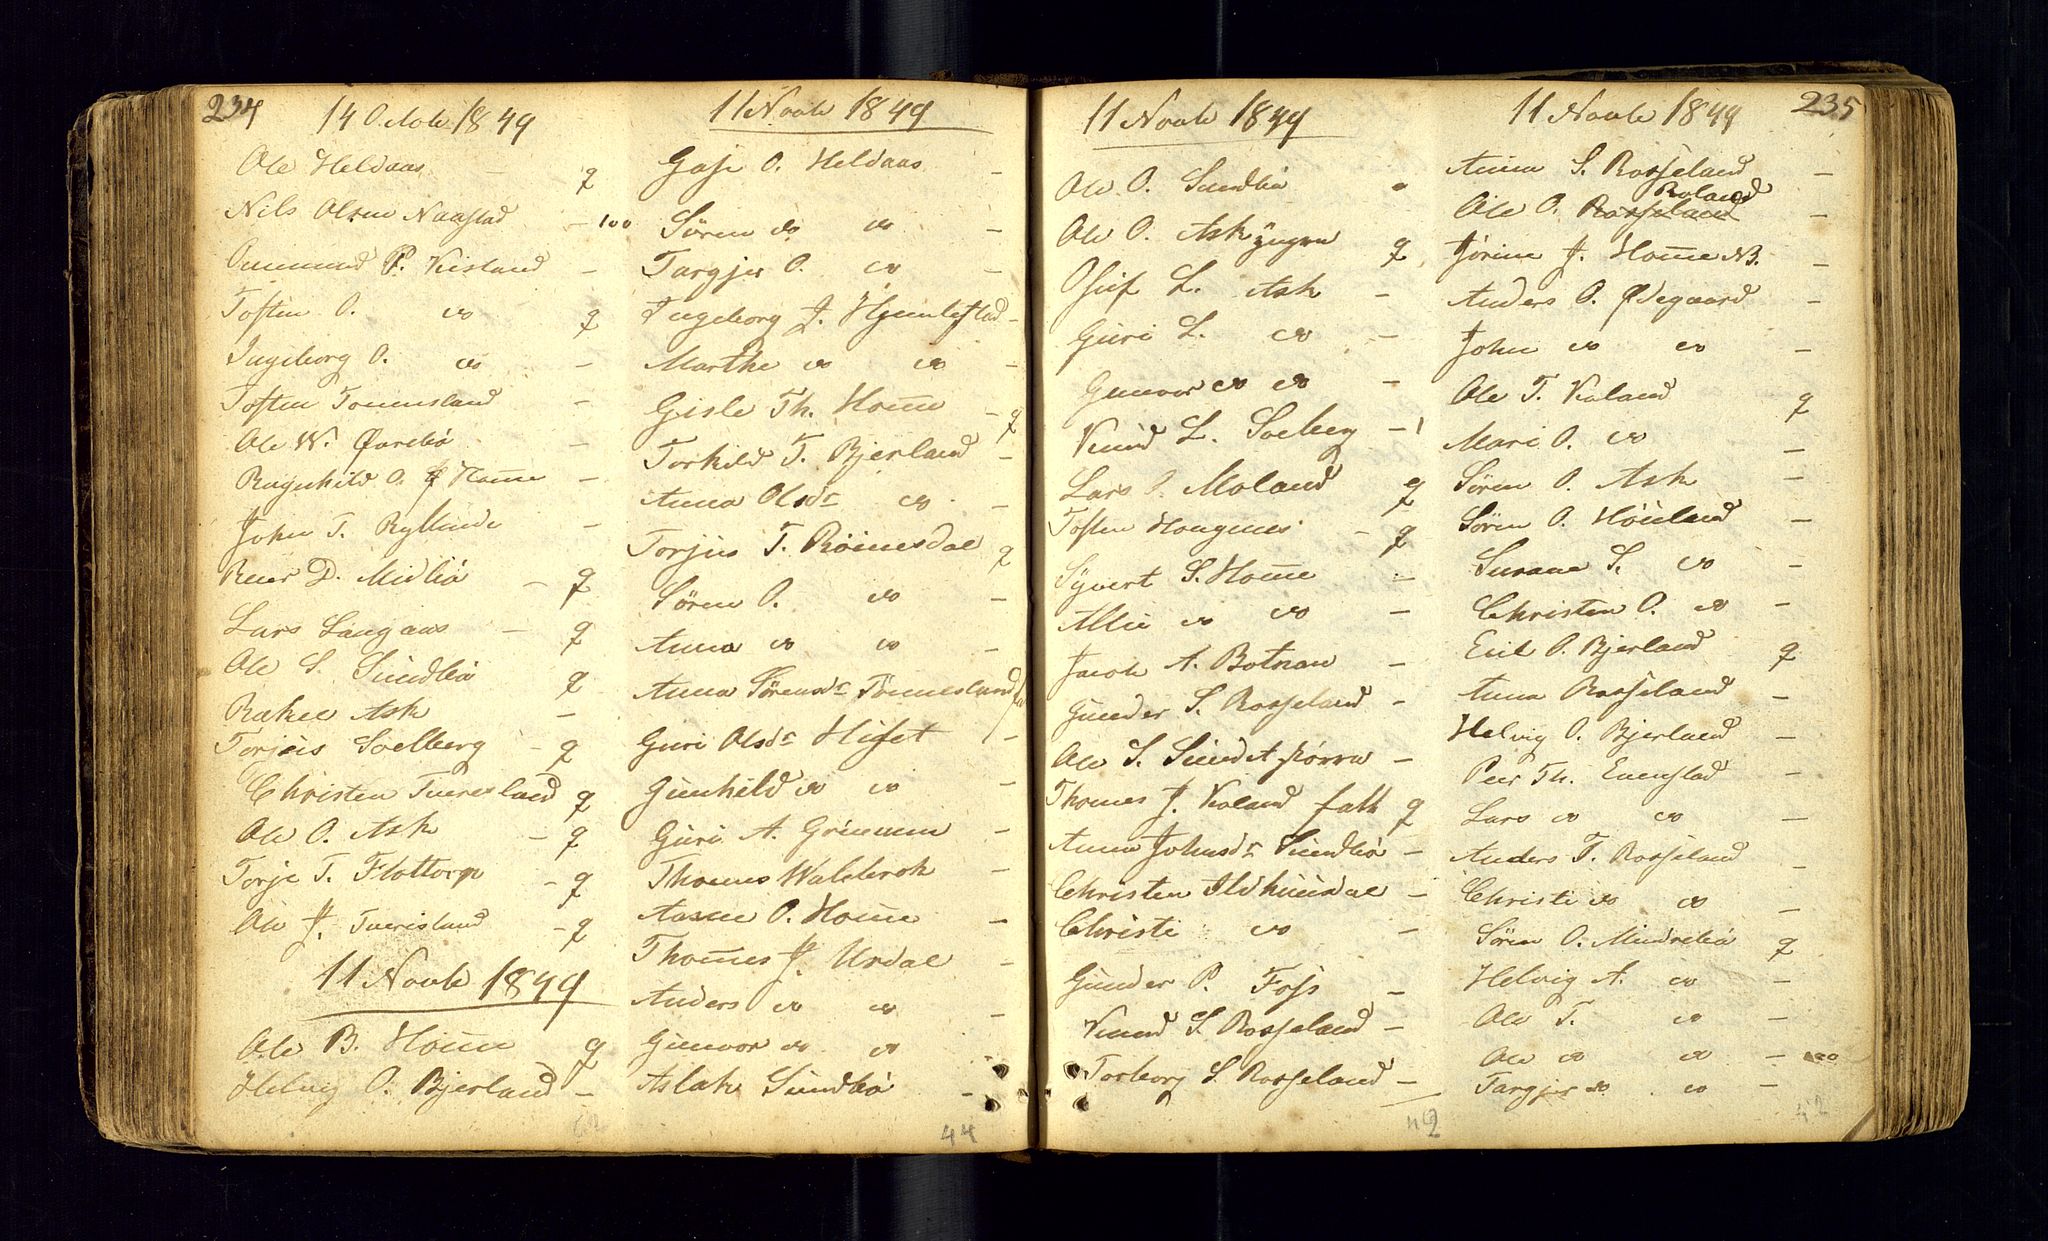 234
14 Octob 1849
Ole Heldaas - q
Nils Olsen Naastad - 100
Ommund P. Keisland -
Tosten O. do q
Ingeborg O. do -
Tosten Tommesland -
Ole W. Øvrebø -
Ragnhild O. Home -
John T. Bylunde -
Peer D. Midbø - q
Lars Laugaas - q
Ole S. Sundbø q
Rakel Ask -
Torjus Solberg - q
Christen Tveresland q
Ole O. Ask - q
Torje T. Flottorp - q
Ole J. Tverisland - q
11 Novb 1849
Ole B. Home q
Helvig O. Bjerland -
62
11 Novb 1849
O. Heldaas -
Søren do do -
Targjer O. do -
Ingeborg J. Hjemlestad -
Marthe do do -
Gisle Th. Home - q
Torkild T. Bjerland -
Anna Olsdr do -
Torjus T. Röinesdal q
Søren O. do -
Anna do do -
Anna Sørensdr Tommesland
Guri Olsdr -
Gunhild do do -
Guri A. Grimmen -
Thomes Walebrok -
Aasne O. Home -
Thomes J. Urdal -
Anders do do -
Gunvor do do -
Aslak Sundbø -
44
11 Novb 1849
Ole O. Sundbø
Ole O. Ask yngre q
Osuf L. Ask -
Guri L. do -
Gunvor do do -
Knud L. Solberg - 1
Lars O. Moland q
Tosten Haugenes - q
Syvert S. Home -
Allie do do -
Jacob A. Botnan -
Gunder S. Rosseland -
Ole S. Sundet större -
Thomes J. Koland fatt q
Anna Johnsdr Sundbø -
Christen Ildhuusdal -
Christi do -
Gunder P. Foss -
Knud S. Rosseland -
Torborg S. Rosseland -
42
11 Novb 1849
235
Anna S. Rosseland -
Roland
Ole O. Rosseland -
Jörine J. Home NB. -
Anders O. Ødegaard -
John do do -
Ole T. Koland q
Mari O. do -
Søren O. Ask -
Søren O. Höiland -
Susane S. do -
Christen O. do -
Emil O. Bjerland q
Anna Rosseland -
Helvig O. Bjerland -
Peer Th. Evenstad -
Lars do do -
Anders T. Rosseland -
Christi do do -
Søren O. Mindrebø q
Helvig A. do -
Ole T. do -
Ole do do -
Targjer do do -
42